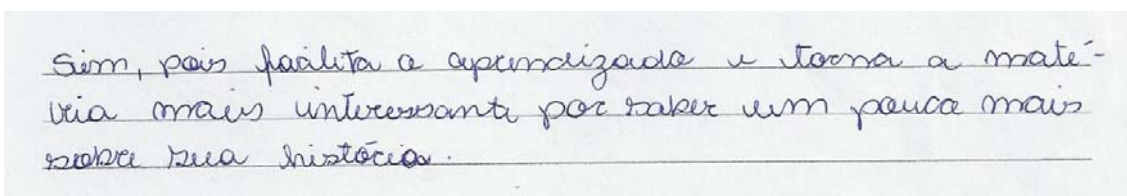 Sim, pois facilita o aprendizado e torna a maté-
ria mais interessante por saber um pouco mais
sobre sua história.